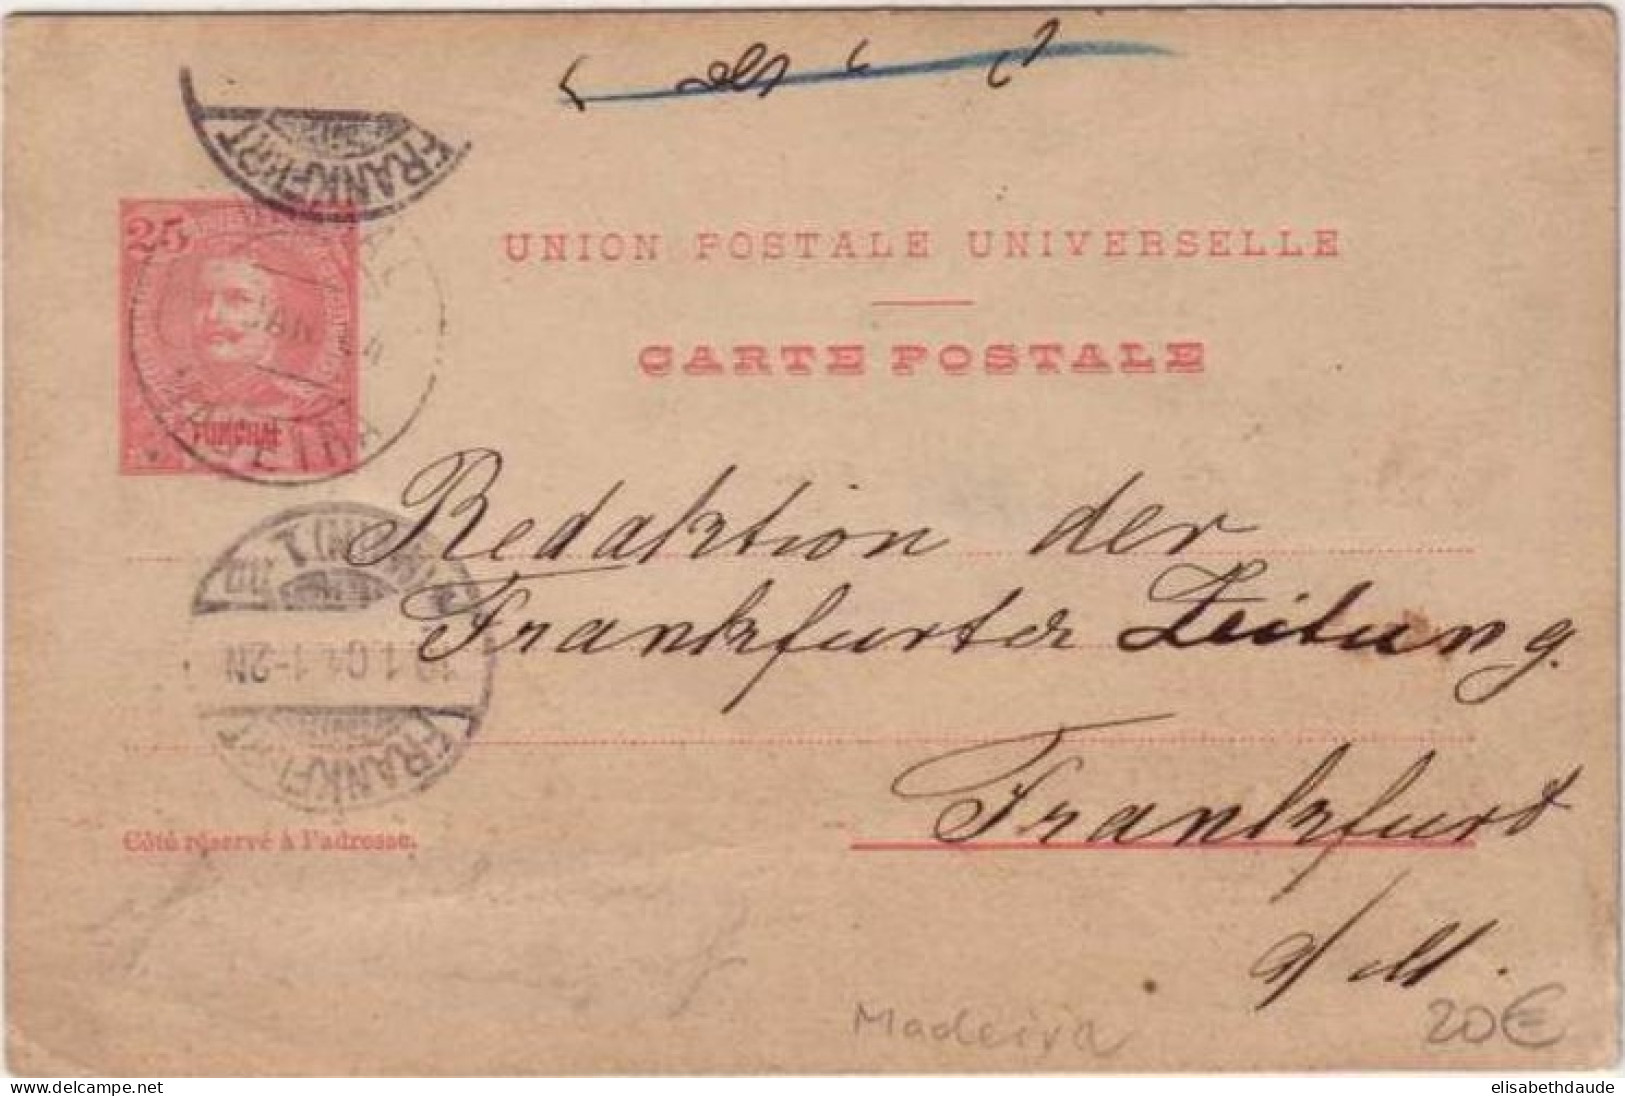 FRANKFURT
25
UNION POSTALE UNIVERSELLE
CARTE POSTALE
JAN
FUNCHAL
MADEIRA
Redaktion der
Frankfurter Zeitung.
1.04.1-2N
FRANKFURT
Frankfurt
Côté réservé à l'adresse.
a/M.
Madeira
20€
elisabethdaude